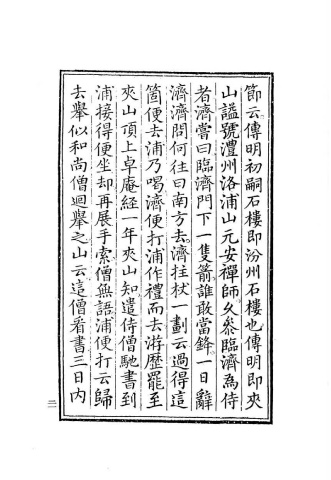 節云傳明初嗣石樓即汾州石樓也傳明即夾
山謚號澧州洛浦山元安禪師久叅臨濟為侍
者濟嘗曰臨濟門下一隻箭誰敢當鋒一日辭
濟濟問何往曰南方去濟拄杖一劃云過得這
箇便去浦乃喝濟便打浦作禮而去游歷罷至
夾山頂上卓庵経一年夾山知遣侍僧馳書到
浦接得便坐却再展手索僧無語浦便打云歸
去舉似和尚僧迴舉之山云這僧看書三日内
二